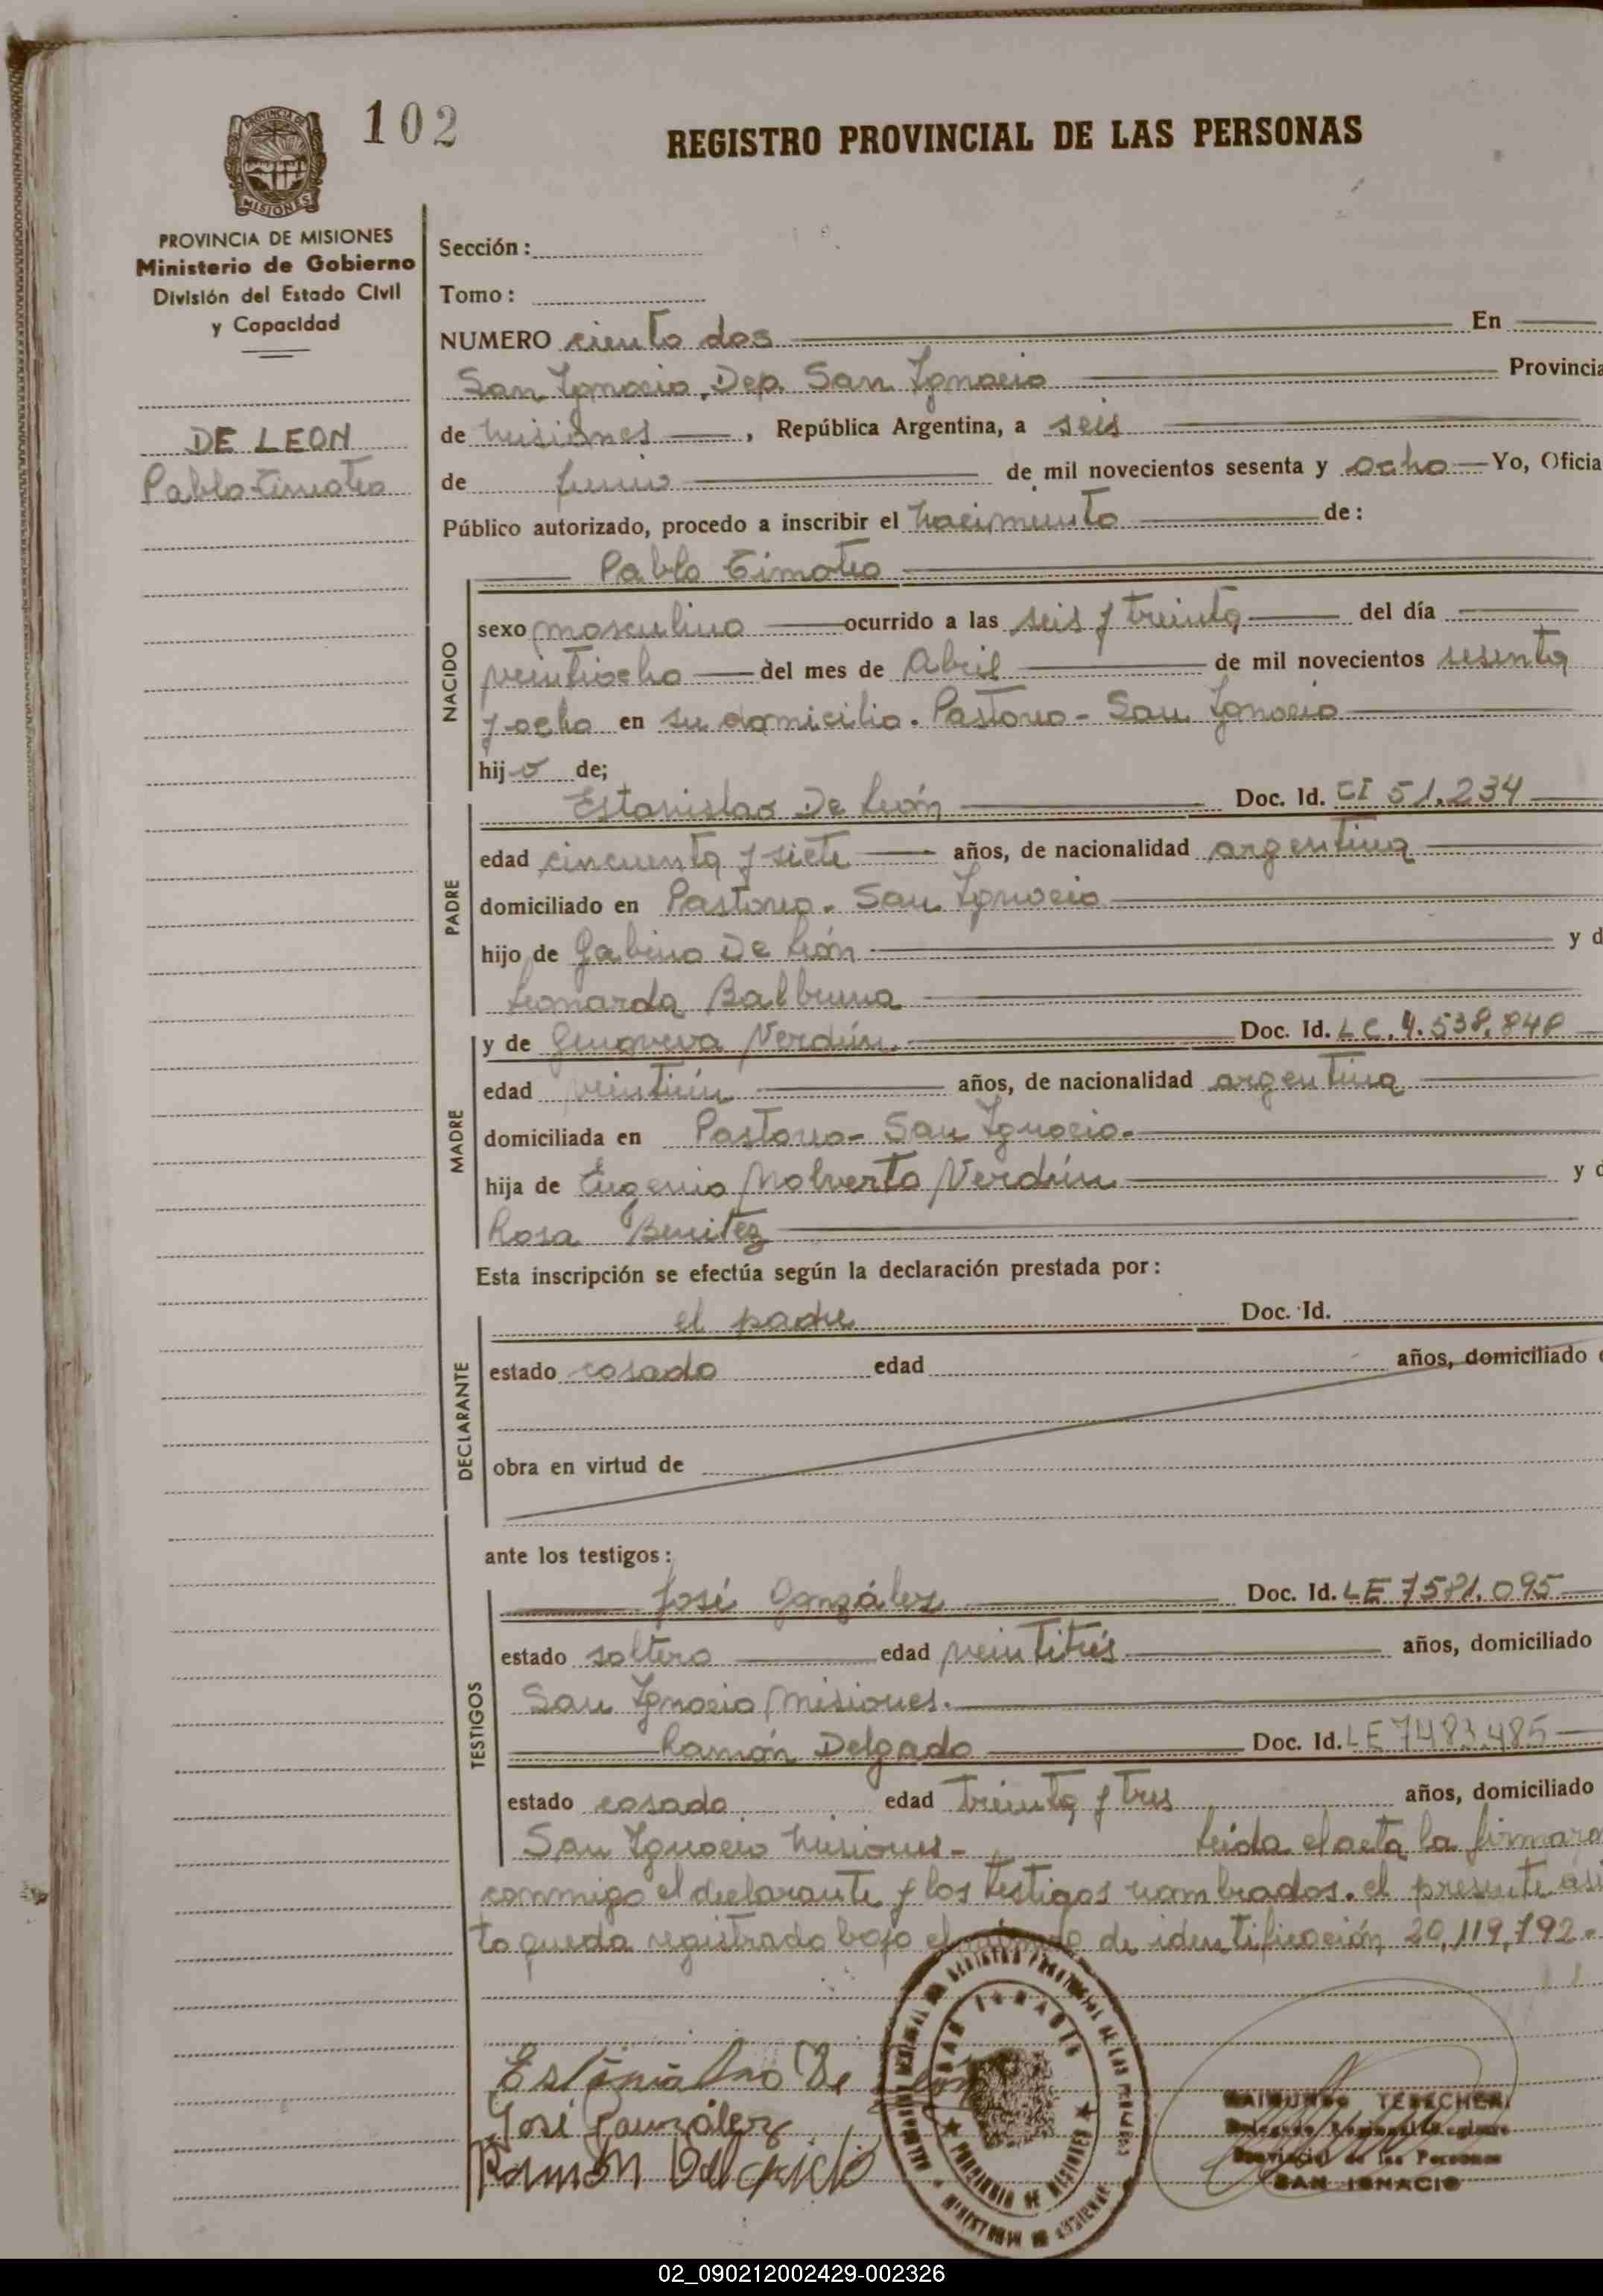 102
REGISTRO PROVINCIAL DE LAS PERSONAS
PROVINCIA DE MISIONES
Ministerio de Gobierno
División del Estado Civil
y Capacidad
DE LEON
Pablo Timoteo
Sección:
Tomo:
NUMERO ciento dos En
San Ignacio, Dep. San Ignacio Provincia
de Misiones, República Argentina, a seis
de Junio de mil novecientos sesenta y ocho Yo, Oficia
Público autorizado, procedo a inscribir el nacimiento de:
NACIDO
Pablo Timoteo
sexo masculino ocurrido a las seis y treinta del día
veintiocho del mes de Abril de mil novecientos sesenta
y ocho en su domicilio. Pastoreo - San Ignacio
hijo de;
PADRE
Estanislao De León Doc. Id. CI 51.234
edad cincuenta y siete años, de nacionalidad argentina
domiciliado en Pastoreo. San Ignacio
hijo de Gabino De León y d
Leonarda Balbuena
MADRE
y de Genoveva Verdún. Doc. Id. LC. 4.538.848
edad veintiún años, de nacionalidad argentina
domiciliada en Pastoreo - San Ignacio.
hija de Eugenio Nolverto Verdún y d
Rosa Benitez
Esta inscripción se efectúa según la declaración prestada por:
DECLARANTE
el padre Doc. Id.
estado casado edad años, domiciliado e
obra en virtud de
ante los testigos:
TESTIGOS
José González Doc. Id. LE 7581.095
estado soltero edad veintitrés años, domiciliado
San Ignacio Misiones.
Ramón Delgado Doc. Id. LE 7483.485
estado casado edad treinta y tres años, domiciliado
San Ignacio Misiones - Leida el acta la firmaro
conmigo el declarante y los testigos nombrados. el presente asi
to queda registrado bajo el de identificación 20,119,792.
Estanislao De León
José González
Ramón Delgado
SAN IGNACIO
PROVINCIA DE MISIONES
RAIMUNDO
Provincial de las Personas
SAN IGNACIO
02_090212002429-002326